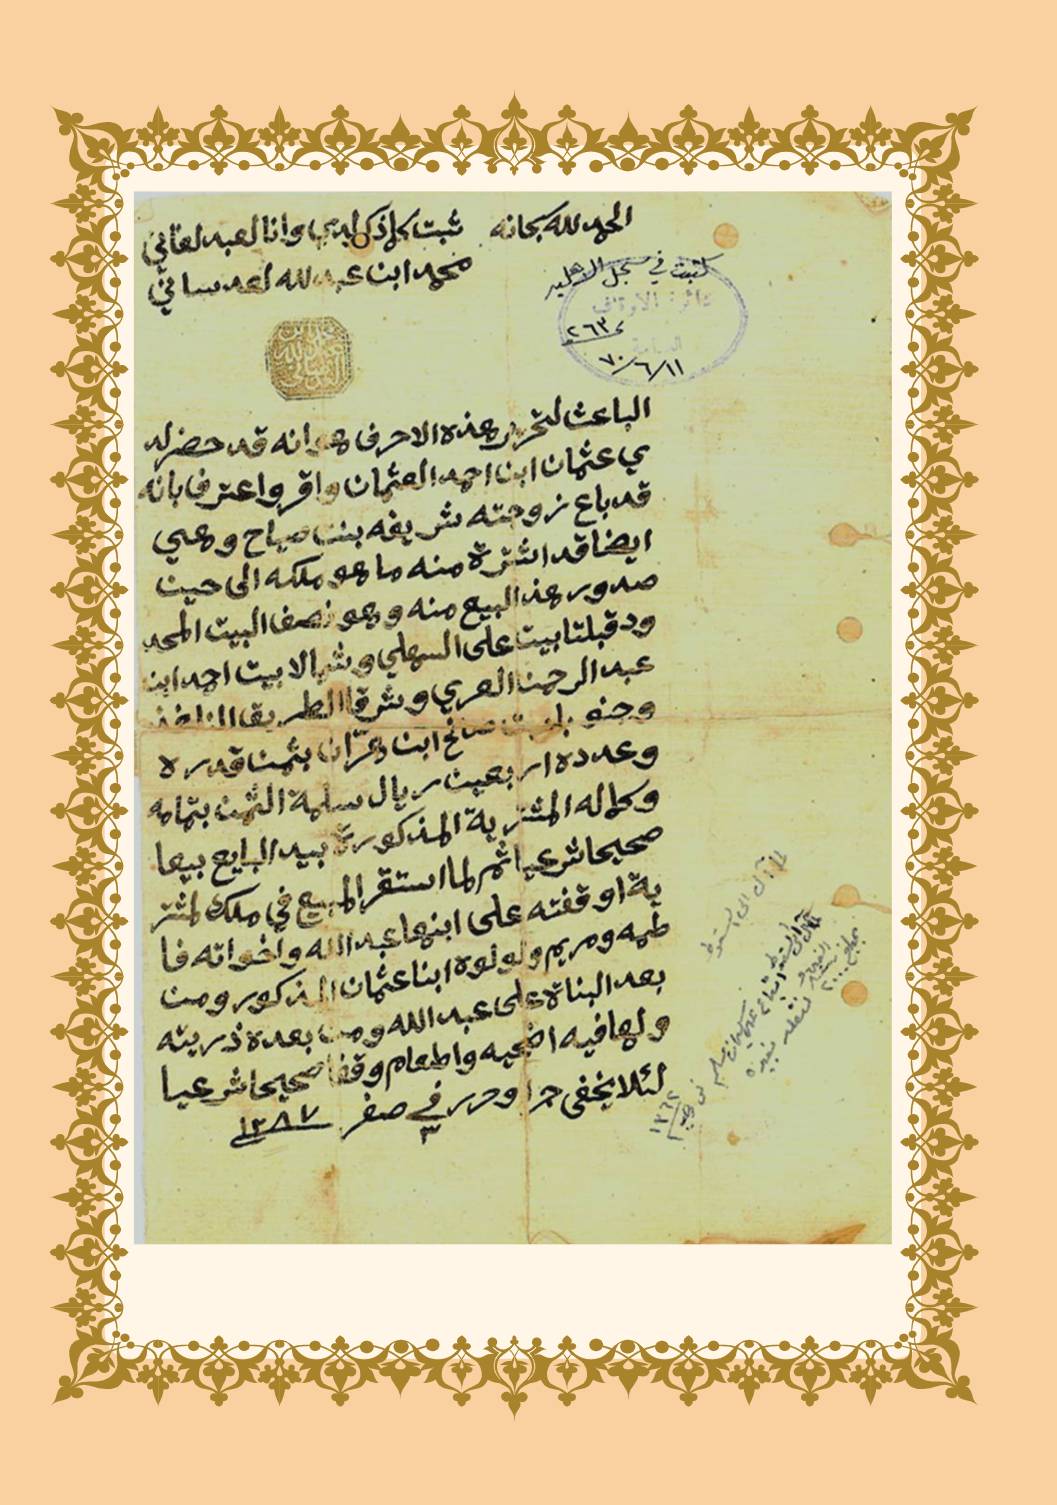 الحمد لله سبحانه
ثبت كلما ذكر لدي وانا لعبد لفاني
محمد ابن عبد لله لعدساني
ثبت في سجل الاهليه
دائرة الاوقاف
العامة
٢٦٣٤
٧٠/٦/١١
الباعث لتحرير هذه الاحرف هو انه قد حضر لد
ي عثمان ابن احمد العثمان واقر واعترف بانه
قد باع زوجته شريفه بنت صباح وهي
ايضا قد اشترة منه ما هو ملكه الى حين
صدور هذ البيع منه وهو نصف البيت المحد
ود قبلتا بيت على السهلي وشمالا بيت احمد ابن
عبد الرحمن وشرقا الطريق النافذ
وجنوبا بيت صالح ابن بثمن قدره
وعدده اربعين ريال سلمة الثمن بتمامه
وكماله المشترية المذكورة بيد البايع بيعا
صحيحا شرعيا ثم لما استقر المبيع في ملك لمشتر
ية اوقفته على ابنها عبد الله واخواته فا
طمه ومريم ولولوه ابنا عثمان المذكور ومن
بعد البناة على عبد الله ومن بعده ذريته
ولها فيه اضحيه واطعام وقفا صحيحا شرعيا
لئلا يخفى جرا وحرر في ٣ صفر ١٢٨٧